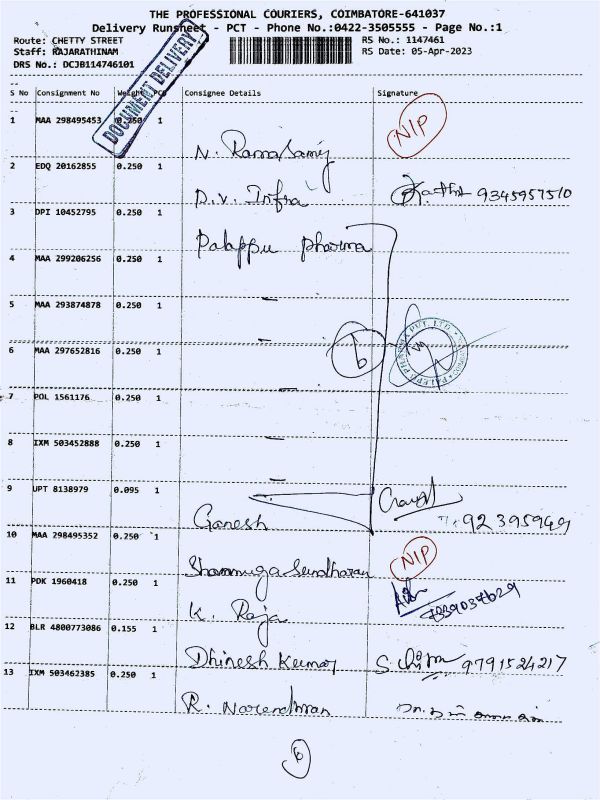 THE PROFESSIONAL COURIERS, COIMBATORE-641037
Delivery Runsheet - PCT - Phone No.:0422-3505555 - Page No.:1
Route: CHETTY STREET RS No.: 1147461
Staff: RAJARATHINAM RS Date: 05-Apr-2023
DRS No.: DCJB114746101
DOCUMENT DELIVERY
S No Consignment No Weight PCS Consignee Details Signature
1 MAA 298495453 0.250 1 N. Ramasamy NIP
2 EDQ 20162855 0.250 1 D.V. Infra 9345957510
3 DPI 10452795 0.250 1 Palappu pharma
4 MAA 299206256 0.250 1
5 MAA 293874878 0.250 1 —
6 MAA 297652816 0.250 1 — 6
7 POL 1561176 0.250 1 —
8 IXM 503452888 0.250 1 —
9 UPT 8138979 0.095 1 — Ganesh
10 MAA 298495352 0.250 1 Shanmuga Sundharam NIP
11 PDK 1960418 0.250 1 K. Raja
12 BLR 4800773086 0.155 1 Dhinesh Kumar 9791524217
13 IXM 503462385 0.250 1 R. Narendhran
6